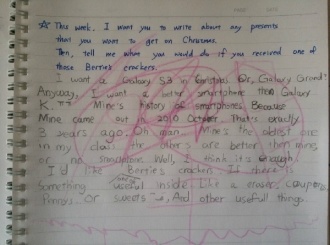 ☆ This week, I want you to write about any presents
that you want to get on Christmas.
Then, tell me what you would do if you received one of
those Berries crackers.
I want a Galaxy S3 in Christmas. Or, Galaxy Grand!
Anyway, I want a better smartphone than Galaxy
K. Mine's history of smartphones. Because
Mine came out in 2010 October. That's exactly
3 years ago. Oh man... Mine's the oldest one
in my class, the others are better than mine
or no smartphone. Well, I think it's enough.
I'd like Berrie's cracker. If there is
something useful inside. Like a eraser, coupons,
Pennys.. Or sweets.. And other usefull things.